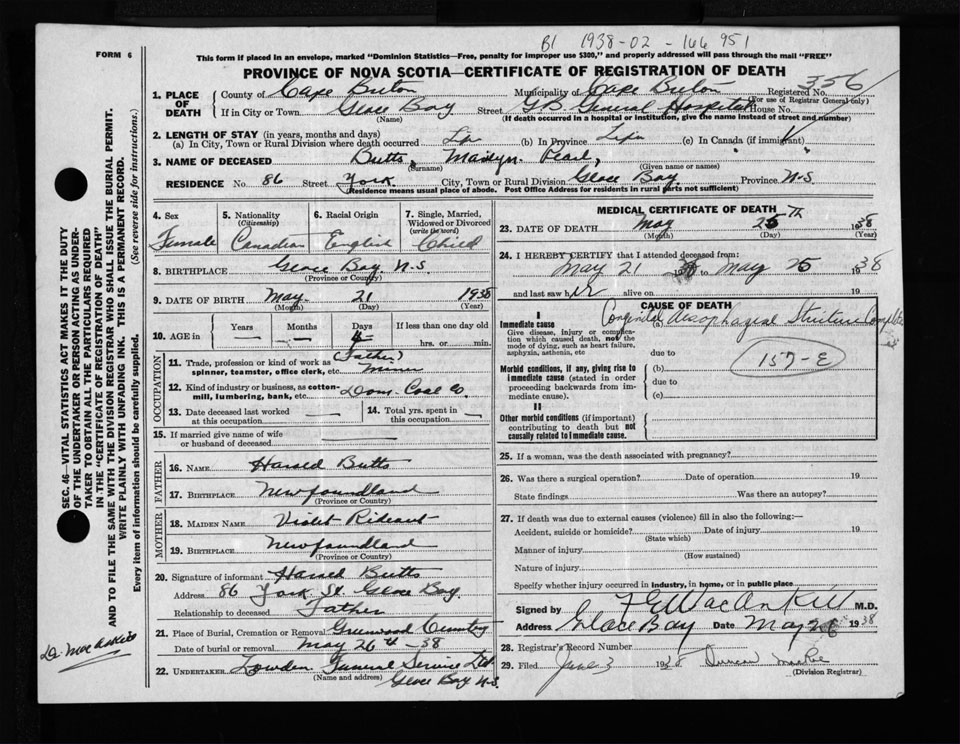 B1 1938-02-166 951
FORM 6
This form if placed in an envelope, marked "Dominion Statistics—Free, penalty for improper use $300," and properly addressed will pass through the mail "FREE"
PROVINCE OF NOVA SCOTIA—CERTIFICATE OF REGISTRATION OF DEATH
1. PLACE OF DEATH
County of Cape Breton Municipality of Cape Breton Registered No. 356
(For use of Registrar General only)
If in City or Town Glace Bay Street GB General Hospital House No.
(Name) (If death occurred in a hospital or institution, give the name instead of street and number)
2. LENGTH OF STAY (in years, months and days)
(a) In City, Town or Rural Division where death occurred (b) In Province Life (c) In Canada (if immigrant)
3. NAME OF DECEASED Butts, Marilyn Pearl,
(Surname) (Given name or names)
RESIDENCE No. 86 Street York City, Town or Rural Division Glace Bay Province N-S
(Residence means usual place of abode. Post Office Address for residents in rural parts not sufficient)
4. Sex Female
5. Nationality (Citizenship) Canadian
6. Racial Origin English
7. Single, Married, Widowed or Divorced (write the word) Child
8. BIRTHPLACE Glace Bay N.S.
(Province or Country)
9. DATE OF BIRTH May 21 1938
(Month) (Day) (Year)
10. AGE in Years Months Days 4 If less than one day old
hrs. or min.
OCCUPATION
11. Trade, profession or kind of work as spinner, teamster, office clerk, etc. (Father) Miner
12. Kind of industry or business, as cotton-mill, lumbering, bank, etc. Dom. Coal Co.
13. Date deceased last worked at this occupation
14. Total yrs. spent in this occupation
15. If married give name of wife or husband of deceased
FATHER
16. NAME Harold Butts
17. BIRTHPLACE Newfoundland
(Province or Country)
MOTHER
18. MAIDEN NAME Violet Rideout
19. BIRTHPLACE Newfoundland
(Province or Country)
20. Signature of informant Harold Butts
Address 86 York St. Glace Bay
Relationship to deceased Father
21. Place of Burial, Cremation or Removal Greenwood Cemetery
Date of burial or removal May 26th -38
22. UNDERTAKER Lowden Funeral Service Ltd
(Name and address) Glace Bay N.S.
MEDICAL CERTIFICATE OF DEATH
23. DATE OF DEATH May 25Th 1938
(Month) (Day) (Year)
24. I HEREBY CERTIFY that I attended deceased from:
May 21 19 to May 25 1938
and last saw her alive on 19
CAUSE OF DEATH
I
Immediate cause
Give disease, injury or complication which caused death, not the mode of dying, such as heart failure, asphyxia, asthenia, etc
(a) Congenital Aesophageal Stricture Complete
due to
Morbid conditions, if any, giving rise to immediate cause (stated in order proceeding backwards from immediate cause).
(b) 157-E
due to
(c)
II
Other morbid conditions (if important) contributing to death but not causally related to immediate cause.
25. If a woman, was the death associated with pregnancy?
26. Was there a surgical operation? Date of operation 19
State findings Was there an autopsy?
27. If death was due to external causes (violence) fill in also the following:—
Accident, suicide or homicide? Date of injury 19
(State which)
Manner of injury
(How sustained)
Nature of injury
Specify whether injury occurred in industry, in home, or in public place
Signed by M.D.
Address Glace Bay Date May 26 1938
28. Registrar's Record Number
29. Filed June 3 1938 Duncan
(Division Registrar)
SEC. 46—VITAL STATISTICS ACT MAKES IT THE DUTY
OF THE UNDERTAKER OR PERSON ACTING AS UNDER-
TAKER TO OBTAIN ALL THE PARTICULARS REQUIRED
IN THE "CERTIFICATE OF REGISTRATION OF DEATH"
AND TO FILE THE SAME WITH THE DIVISION REGISTRAR WHO SHALL ISSUE THE BURIAL PERMIT.
WRITE PLAINLY WITH UNFADING INK. THIS IS A PERMANENT RECORD.
Every item of information should be carefully supplied. (See reverse side for instructions.)